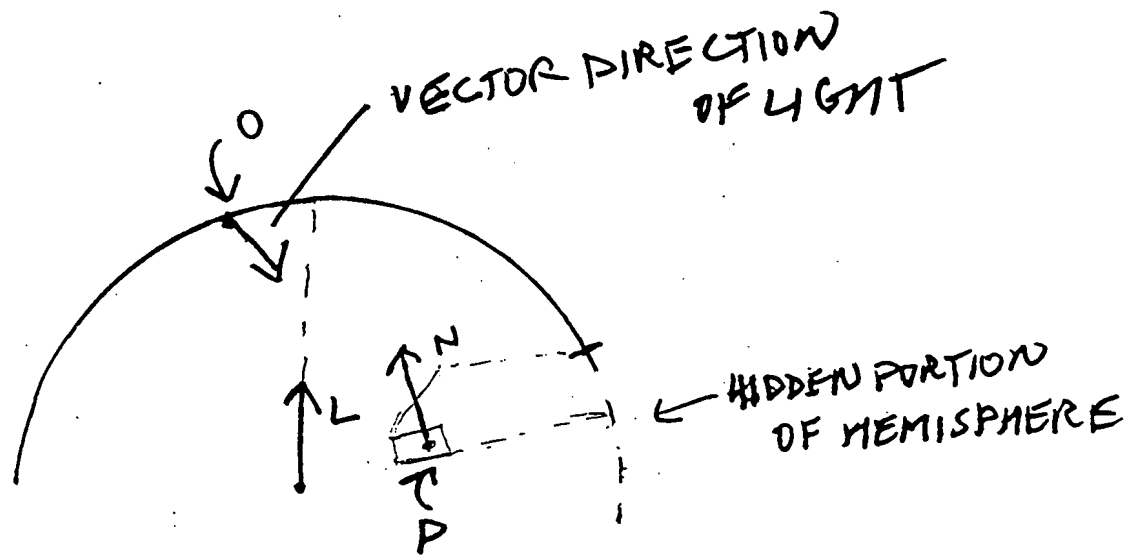 VECTOR DIRECTION
OF LIGHT
O
N
L
HIDDEN PORTION
OF HEMISPHERE
P